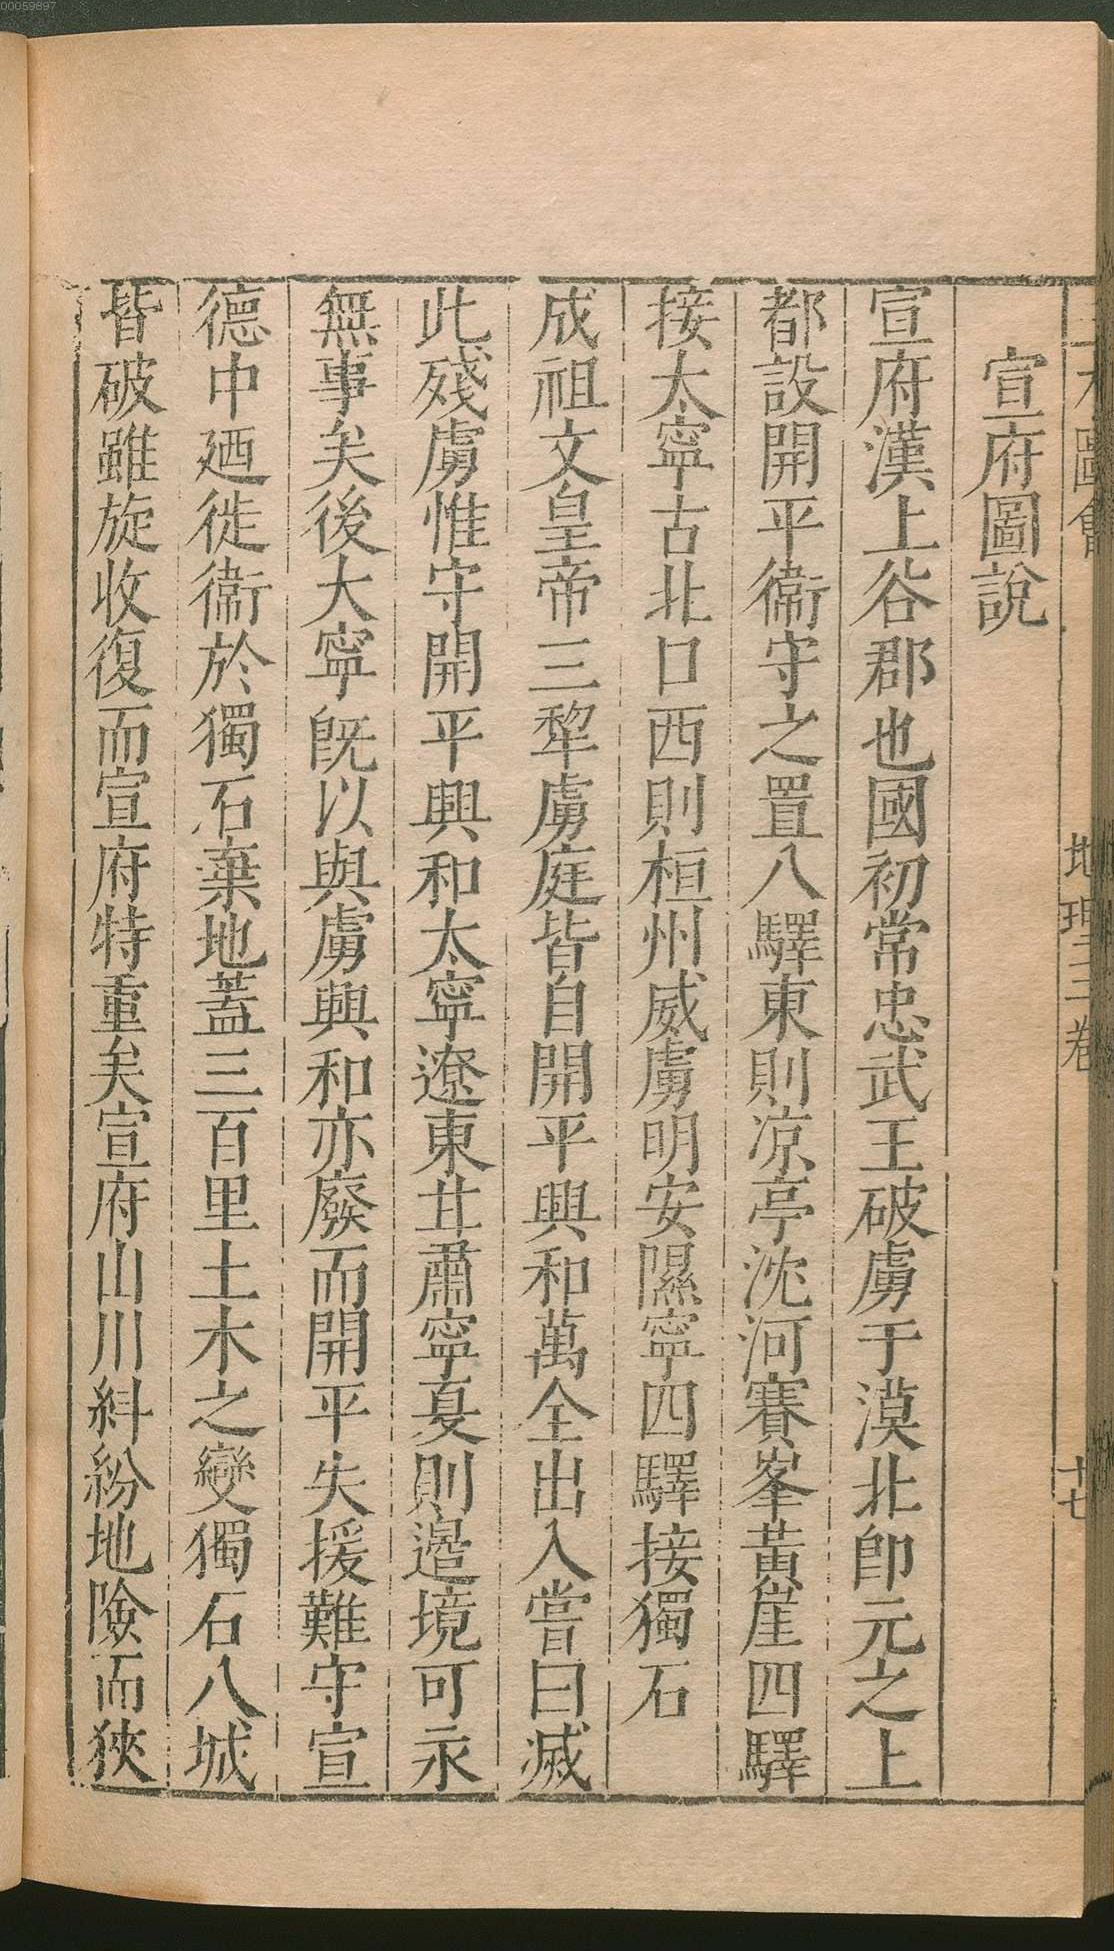 00059897
地理三卷
十七
宣府圖說
宣府漢上谷郡也國初常忠武王破虜于漠北卽元之上
都設開平衞守之置八驛東則凉亭沈河賽峯黃崖四驛
接太寧古北口西則桓州威虜明安隰寧四驛接獨石
成祖文皇帝三犂虜庭皆自開平興和萬全出入嘗曰滅
此殘虜惟守開平興和太寧遼東甘肅寧夏則邉境可永
無事矣後大寧旣以與虜興和亦廢而開平失援難守宣
德中廼徙衞於獨石棄地蓋三百里土木之變獨石八城
皆破雖旋收復而宣府特重矣宣府山川糾紛地險而狹